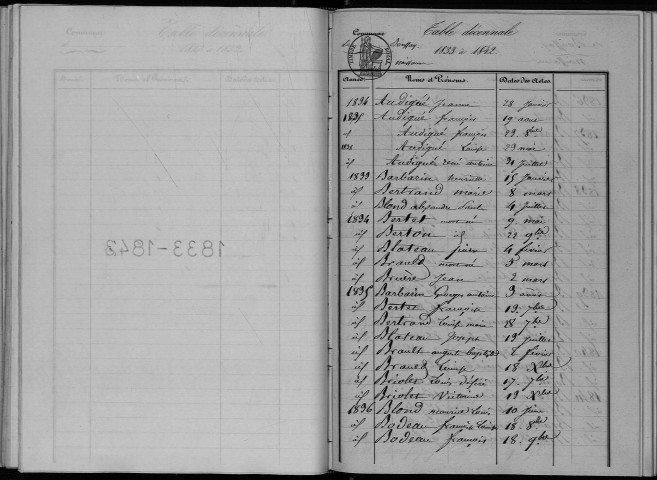 Table décennale
1833 à 1842
1833-1842
Commune
Table décennale
1833 à 1842.
naissances
Années
Noms et Prénoms.
Dates des Actes.
1834 Audigué Jeanne 28 janvier
1835 Audigué françois 19 avril
id Audigué françois 29 8bre
1838 Audigué Louise 29 mai
id Audigué rené antoine 31 juillet
1833 Barbarin henriette 15 janvier
id Bertrand marie 8 mars
id Blond alexandre Paul 4 juillet
1834 Bertet mort né 9 mai
id Berton id 22 9bre
id Blateau 4 février
id Brault mort né 5 mars
id Jean 2 mars
1835 Barbarin Georges antoine 3 août
id Bertet françoise 19. 7bre
id Bertrand Louise marie 28 7bre
id Blateau Joseph 19 juillet
id Brault auguste baptiste février
id Brault Louise 18. Xbre
id Briolet Louis Désiré 17. 7bre
id Briolet Victorine 19 Xbre
1836 Blond maurice Louis 10 juin
id Bodeau françoise Louise 18. 8bre
id Bodeau françois 18. 9bre